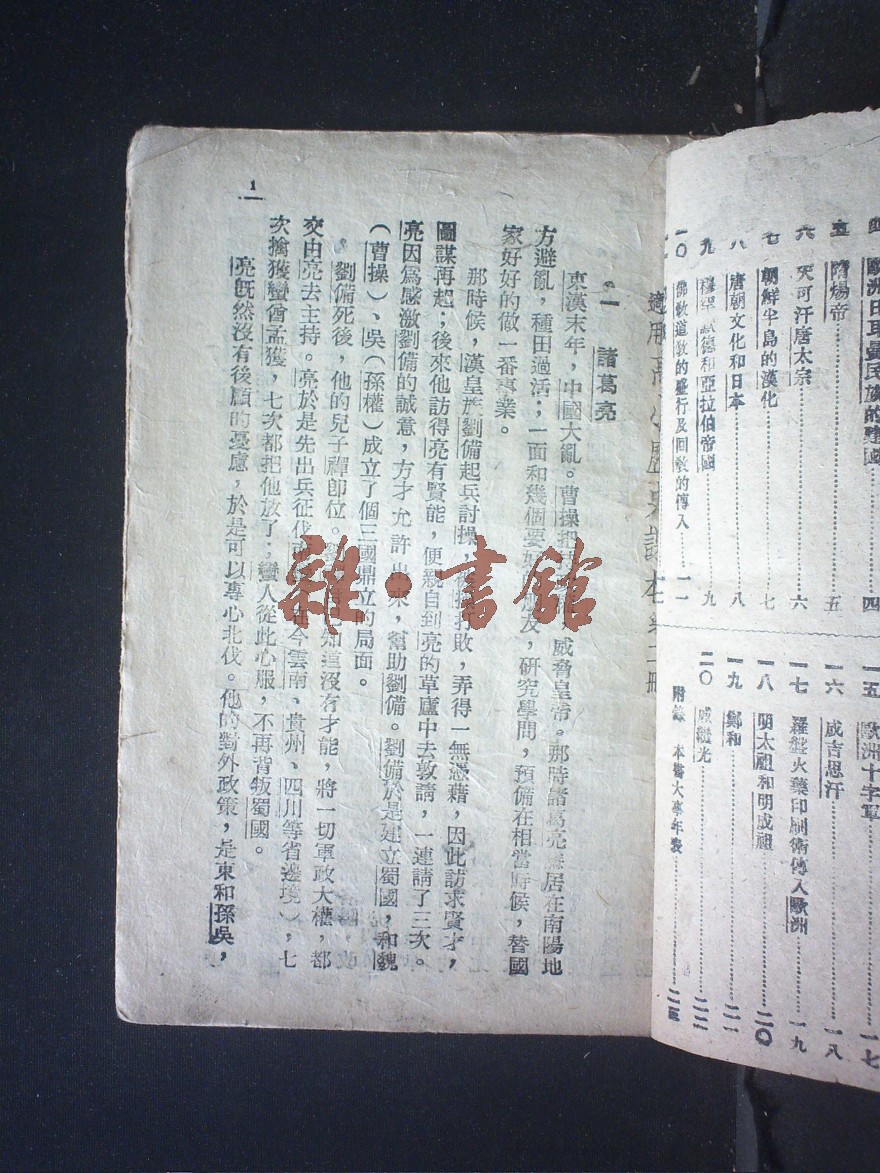 隋煬帝……五
六 天可汗唐太宗……六
七 朝鮮半島的漢化……七
八 唐朝文化和日本……八
九 穆罕默德和亞拉伯帝國……九
一〇 佛教道教的盛行及回教的傳入……一一
一五 歐洲十字軍……一七
一六 成吉思汗……一八
一七 羅盤火藥印刷術傳入歐洲……一九
一八 明太祖和明成祖……二〇
一九 鄭和……二一
二〇 戚繼光……二二
附錄 本書大事年表……二三
適用高小歷史課本第二冊
一 諸葛亮
東漢末年,中國大亂。曹操把持 威脅皇帝。那時諸葛亮 居在南陽地
方避亂,種田過活;一面和幾個要好 朋友,研究學問,預備在相當時候,替國
家好好的做一番事業。
那時候,漢皇族劉備起兵討操, 打敗,弄得一無憑藉,因此訪求賢才,
圖謀再起;後來他訪得亮有賢能,便親自到亮的草廬中去敦請,一連請了三次。
亮因爲感激劉備的誠意,方才允許出來,幫助劉備。劉備於是建立蜀國,和魏
(曹操)、吳(孫權)成立了個三國鼎立的局面。
劉備死後,他的兒子禪卽位。 知道沒有才能,將一切軍政大權,都
交由亮去主持。亮於是先出兵征伐 今雲南、貴州、四川等省邊境),七
次擒獲蠻酋孟獲,七次都把他放了;蠻人從此心服,不再背叛蜀國。
亮旣然沒有後顧的憂慮,於是可以專心北伐。他的對外政策,是東和孫吳,
1
雜·書館